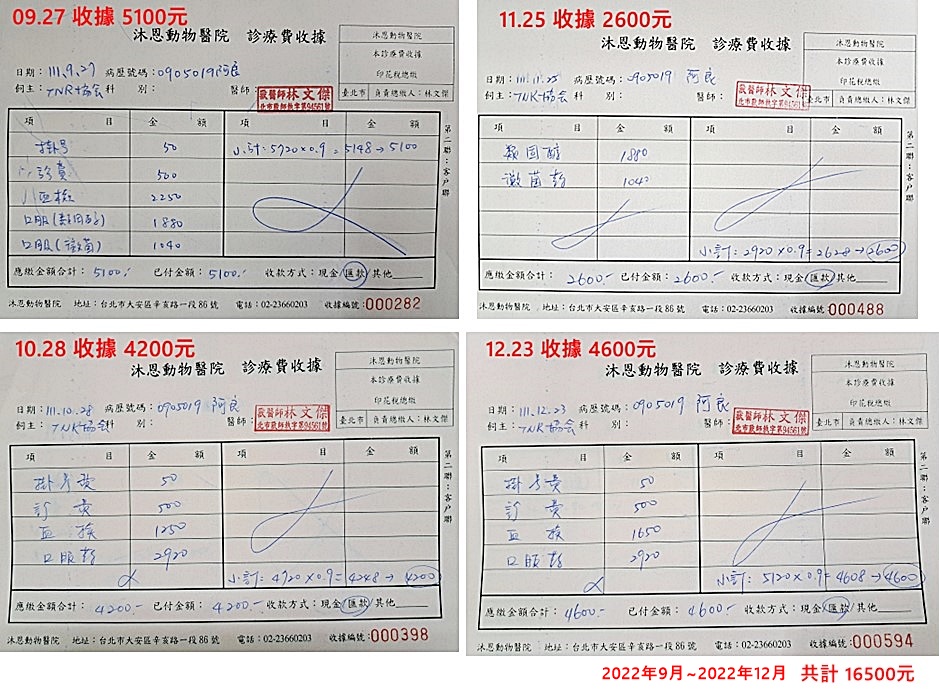 09.27 收據 5100元
沐恩動物醫院 診療費收據
沐恩動物醫院
本診療費收據
印花稅總繳
臺北市 負責總繳人：林文傑
日期：111.9.27 病歷號碼：0905019阿良
飼主：TNR協會 科 別： 醫師：
獸醫師林文傑
北市獸師執字第94561號
項 目 金 額 項 目 金 額
掛号 50 小計：5720×0.9=5148→5100
診費 500
血檢 2250
口服(類固醇) 1880
口服(黴菌) 1040
第二聯：客戶聯
應繳金額合計：5100.- 已付金額：5100.- 收款方式：現金/匯款/其他
沐恩動物醫院 地址：台北市大安區辛亥路一段86號 電話：02-23660203 收據編號：000282
11.25 收據 2600元
沐恩動物醫院 診療費收據
沐恩動物醫院
本診療費收據
印花稅總繳
臺北市 負責總繳人：林文傑
日期：111.11.25 病歷號碼：0905019 阿良
飼主：TNR協會 科 別： 醫師：
獸醫師林文傑
北市獸師執字第94561號
項 目 金 額 項 目 金 額
類固醇 1880
黴菌幫 1040
小計：2920×0.9=2628→2600
第二聯：客戶聯
應繳金額合計：2600.- 已付金額：2600.- 收款方式：現金/匯款/其他
沐恩動物醫院 地址：台北市大安區辛亥路一段86號 電話：02-23660203 收據編號：000488
10.28 收據 4200元
沐恩動物醫院 診療費收據
沐恩動物醫院
本診療費收據
印花稅總繳
臺北市 負責總繳人：林文傑
日期：111.10.28 病歷號碼：0905019 阿良
飼主：TNR協會 科 別： 醫師：
獸醫師林文傑
北市獸師執字第94561號
項 目 金 額 項 目 金 額
掛号費 50
診費 500
血檢 1250
口服葯 2920
小計：4720×0.9=4248→4200
第二聯：客戶聯
應繳金額合計：4200.- 已付金額：4200.- 收款方式：現金/匯款/其他
沐恩動物醫院 地址：台北市大安區辛亥路一段86號 電話：02-23660203 收據編號：000398
12.23 收據 4600元
沐恩動物醫院 診療費收據
沐恩動物醫院
本診療費收據
印花稅總繳
臺北市 負責總繳人：林文傑
日期：111.12.23 病歷號碼：0905019 阿良
飼主：TNR協會 科 別： 醫師：
獸醫師林文傑
北市獸師執字第94561號
項 目 金 額 項 目 金 額
掛号費 50
診費 500
血檢 1650
口服葯 2920
小計：5120×0.9=4608→4600
第二聯：客戶聯
應繳金額合計：4600.- 已付金額：4600.- 收款方式：現金/匯款/其他
沐恩動物醫院 地址：台北市大安區辛亥路一段86號 電話：02-23660203 收據編號：000594
2022年9月~2022年12月 共計 16500元